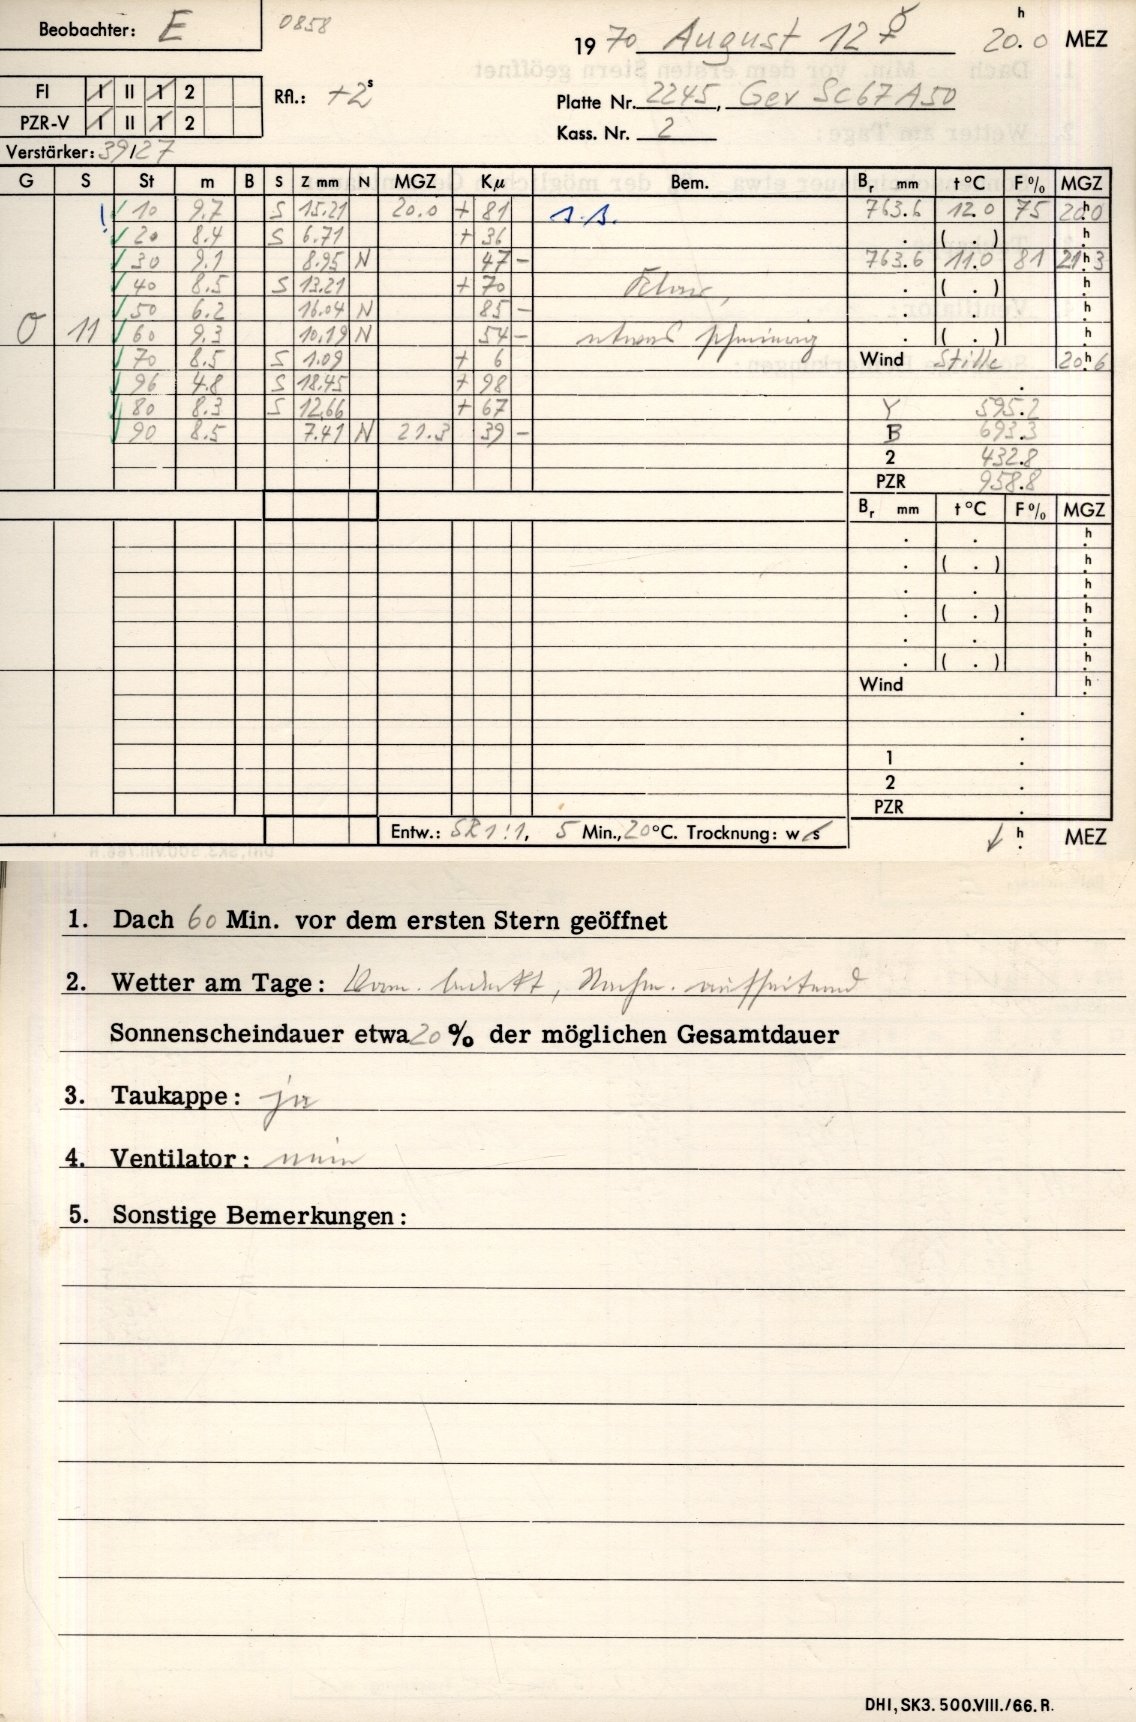 Beobachter: E
0858
1970 August 12 ☿ 20.0ʰ MEZ
FI I II 1 2
PZR-V I II 1 2
Rfl.: +2ˢ
Platte Nr. 2245, Gev Sc67A50
Kass. Nr. 2
Verstärker: 39/27
G S St m B S Z mm N MGZ Kμ Bem. Bᵣ mm t°C F% MGZ
! ✓ 10 9.7 S 15.21 20.0 + 81 s.B. 763.6 12.0 75 20ʰ.0
✓ 20 8.4 S 6.71 + 36 . ( . ) ʰ.
✓ 30 9.1 8.95 N 47 - 763.6 11.0 81 21ʰ.3
✓ 40 8.5 S 13.21 + 70 Klar, . ( . ) ʰ.
✓ 50 6.2 16.04 N 85 - . . ʰ.
O 11 ✓ 60 9.3 10.19 N 54 - etwas . ( . ) ʰ.
✓ 70 8.5 S 1.09 + 6 Wind Stille 20ʰ.6
✓ 96 4.8 S 18.45 + 98 .
✓ 80 8.3 S 12.66 + 67 Y 595.2
✓ 90 8.5 7.41 N 21.3 39 - B 693.3
2 432.8
PZR 958.8
Bᵣ mm t°C F% MGZ
. . ʰ.
. ( . ) ʰ.
. . ʰ.
. ( . ) ʰ.
. . ʰ.
. ( . ) ʰ.
Wind ʰ.
.
.
1 .
2 .
PZR .
Entw.: SR 1:1, 5 Min., 20°C. Trocknung: w s ʰ. MEZ
1. Dach 60 Min. vor dem ersten Stern geöffnet
2. Wetter am Tage: Vorm. bedeckt, Nachm. aufheiternd
Sonnenscheindauer etwa 20 % der möglichen Gesamtdauer
3. Taukappe: ja
4. Ventilator: nein
5. Sonstige Bemerkungen:
DHI, SK3. 500.VIII./66. R.